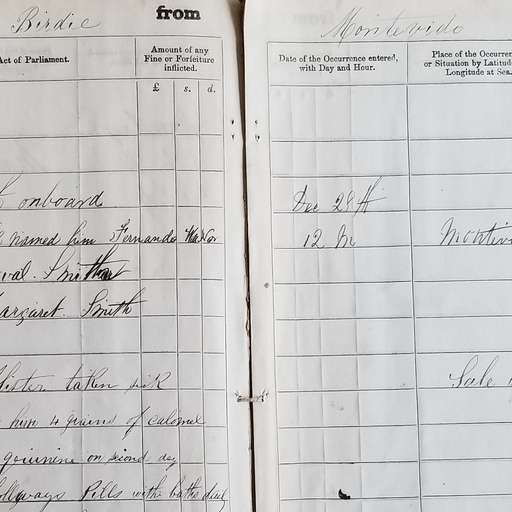 Birdie from
Act of Parliament. Amount of any Fine or Forfeiture inflicted.
£ s. d.
onboard
named him Fernando
Smith
Margaret. Smith
taken sick
him 4 grains of calomel
quinine on second day
Pills with baths
Montevido
Date of the Occurrence entered, with Day and Hour. Place of the Occurren or Situation by Latitud Longitude at Sea.
Dec 29th
12 M Montev